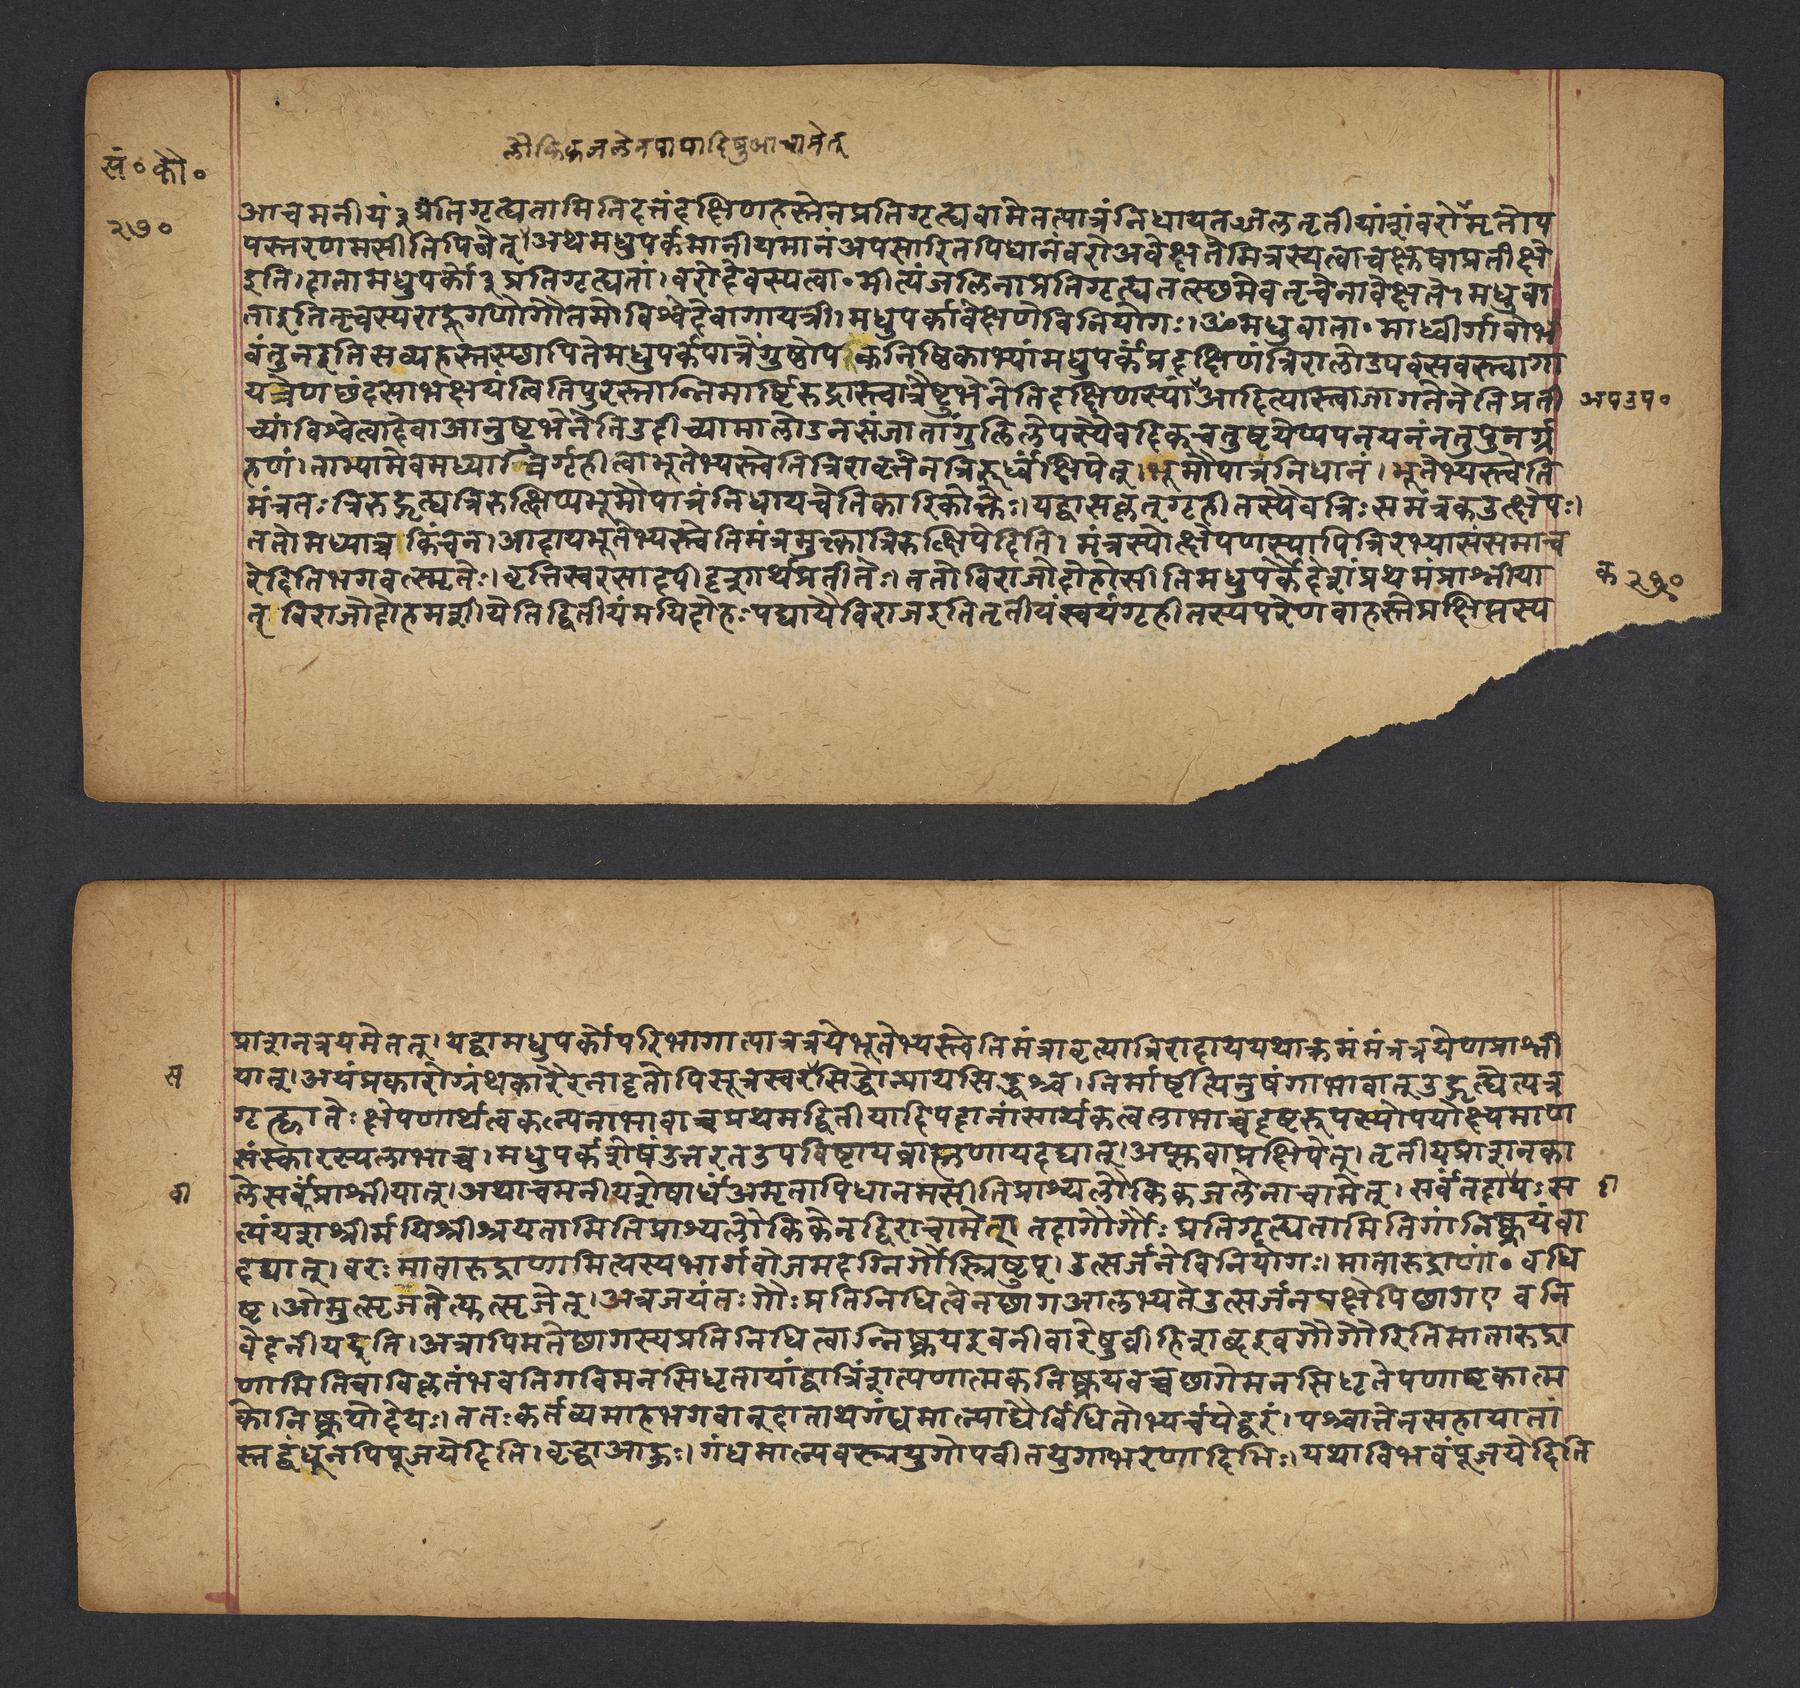 लौकिकजलेनपापादिषुआचामेत्
सं०कौ०
२७०
आचमनीयं३प्रतिगृह्यतामितिदत्तंदक्षिणहस्तेनप्रतिगृह्यवामेतत्पात्रंनिधायतज्जलतृतीयांशंवरोमृतोप
पस्तरणमसीतिपिबेत्।अथमधुपर्कमानीयमानंअपसारितपिधानंवरोअवेक्षतेमित्रस्यत्वाचक्षुषाप्रतीक्षे
इति।दातामधुपर्को३प्रतिगृह्यतां।वरोदेवस्यत्वा०मीत्यंजलिनाप्रतिगृह्यतत्स्छमेवतृचेनावेक्षते।मधुवा
ताइतितृचस्यराहूगणोगौतमोविश्वेदेवागायत्री।मधुपर्कावेक्षणेविनियोगः।ॐमधुवाता०माध्वीर्गावोभ
वंतुनइतिसव्यहस्तस्छापितेमधुपर्कपात्रेंगुष्ठोपकनिष्ठिकाभ्यांमधुपर्कंप्रदक्षिणंत्रिरालोडपवसवस्त्वागा
यत्रेणछंदसाभक्षयंत्वितिपुरस्तान्निमार्ष्टिरुद्रास्त्वात्रैष्टुभेनेतिदक्षिणस्यांआदित्यास्त्वाजागतेनेतिप्रती
अपउप०
च्यांविश्वेत्वादेवाआनुष्टुभेनेतिउदीच्यामालोडनसंजातांगुलिलेपस्यैवदिक्चतुष्टयेप्यपनयनंनतुपुनर्ग्र
हणं।ताभ्यामेवमध्यात्त्रिर्गृहीत्वाभूतेभ्यस्त्वेतित्रिरावृत्तेनत्रिरूर्ध्वंक्षिपेत्।भूमौपात्रंनिधानं।भूतेभ्यस्त्वेति
मंत्रतः त्रिरुद्धृत्यत्रिरुत्क्षिप्यभूमौपात्रंनिधायचेतिकारिकोक्तेः।यद्वासकृत्गृहीतस्यैवत्रिःसमंत्रकउत्क्षेपः।
ततोमध्याच्चकिंचन।आदायभूतेभ्यस्त्वेतिमंत्रमुक्तात्रिरुत्क्षिपेदिति।मंत्रस्योत्क्षेपणस्यापित्रिरभ्यासंसमाच
रेदितिभगवत्स्मृतेः।वृत्तिस्वरसादपीदृशार्थप्रतीतेः।ततोविराजोदोहोसीतिमधुपर्कैदेशंप्रथमंप्राश्नीया
क२७०
त्विराजोदोहमशीयेतिद्वितीयंमयिदोहःपद्यायैविराजइतितृतीयंस्वयंगृहीतस्यपरेणवाहस्तेप्रक्षिप्तस्य
प्राशनत्रयमेतत्।यद्वामधुपर्कोपरिभागात्पात्रत्रयेभूतेभ्यस्त्वेतिमंत्रावृत्यात्रिरादाययथाक्रमंमंत्रत्रयेणप्राश्नी
स
यात्।अयंप्रकारोग्रंथकारैरनादृतोपिसूत्रस्वरसिद्धोन्यायसिद्धश्च।निर्मार्ष्टीत्यनुषंगाभावात्उद्धृत्येत्यत्र
गृह्णातेःक्षेपणार्थत्वकल्पनाभावाच्चप्रथमद्वितीयादिपदानांसार्थकत्वलाभाच्चदृष्टरूपस्योपयोक्ष्यमाण
संस्कारस्यलाभाच्च।मधुपर्कशेषंउत्तरतउपविष्टायब्राह्मणायदद्यात्।अप्सुवाप्रक्षिपेत्।तृतीयप्राशनका
लेसर्वंप्राश्नीयात्।अथाचमनीयशेषार्धंअमृतापिधानमसीतिप्राश्यलौकिकजलेनाचामेत्।सर्वंतदापःस
वा
त्यंयशःश्रीर्मयिश्रीःश्रयतामितिप्राश्यलौकिकेनद्विराचामेत्।तदागौर्गौःप्रतिगृह्यतामितिगांनिष्क्रयंवा
दद्यात्।वरःमातारुद्राणामित्यस्यभार्गवोजमदग्निर्गौस्त्रिष्टुप्।उत्सर्जनेविनियोगः।मातारुद्राणां०वधि
ष्ट।ओमुत्सृजतेत्युत्सृजेत्।अत्रजयंतःगोःप्रतिनिधित्वेनछागआलभ्यतेउत्सर्जनपक्षेपिछागएवनि
वेदनीयइति।अत्रापिमतेछागस्यप्रतिनिधित्वान्निष्क्रयइवनीवारेषुव्रीहिशब्दइवगौर्गौरितिमातारुद्रा
णामितिचाविकृतंभवतिगविमनसिधृतायांद्वात्रिंशत्पणात्मकनिष्क्रयवच्चछागेमनसिधृतेपणाष्टकात्म
कोनिष्क्रयोदेयः।ततःकर्तव्यमाहभगवान्दाताथगंधमाल्याद्यैर्विधितोभ्यर्चयेद्वरं।पश्चात्तेनसहायातां
स्तद्बंधूनपिपूजयेदिति।वृद्धाआहुः।गंधमाल्यवस्त्रयुगोपवीतयुगाभरणादिभिः।यथाविभवंपूजयेदिति